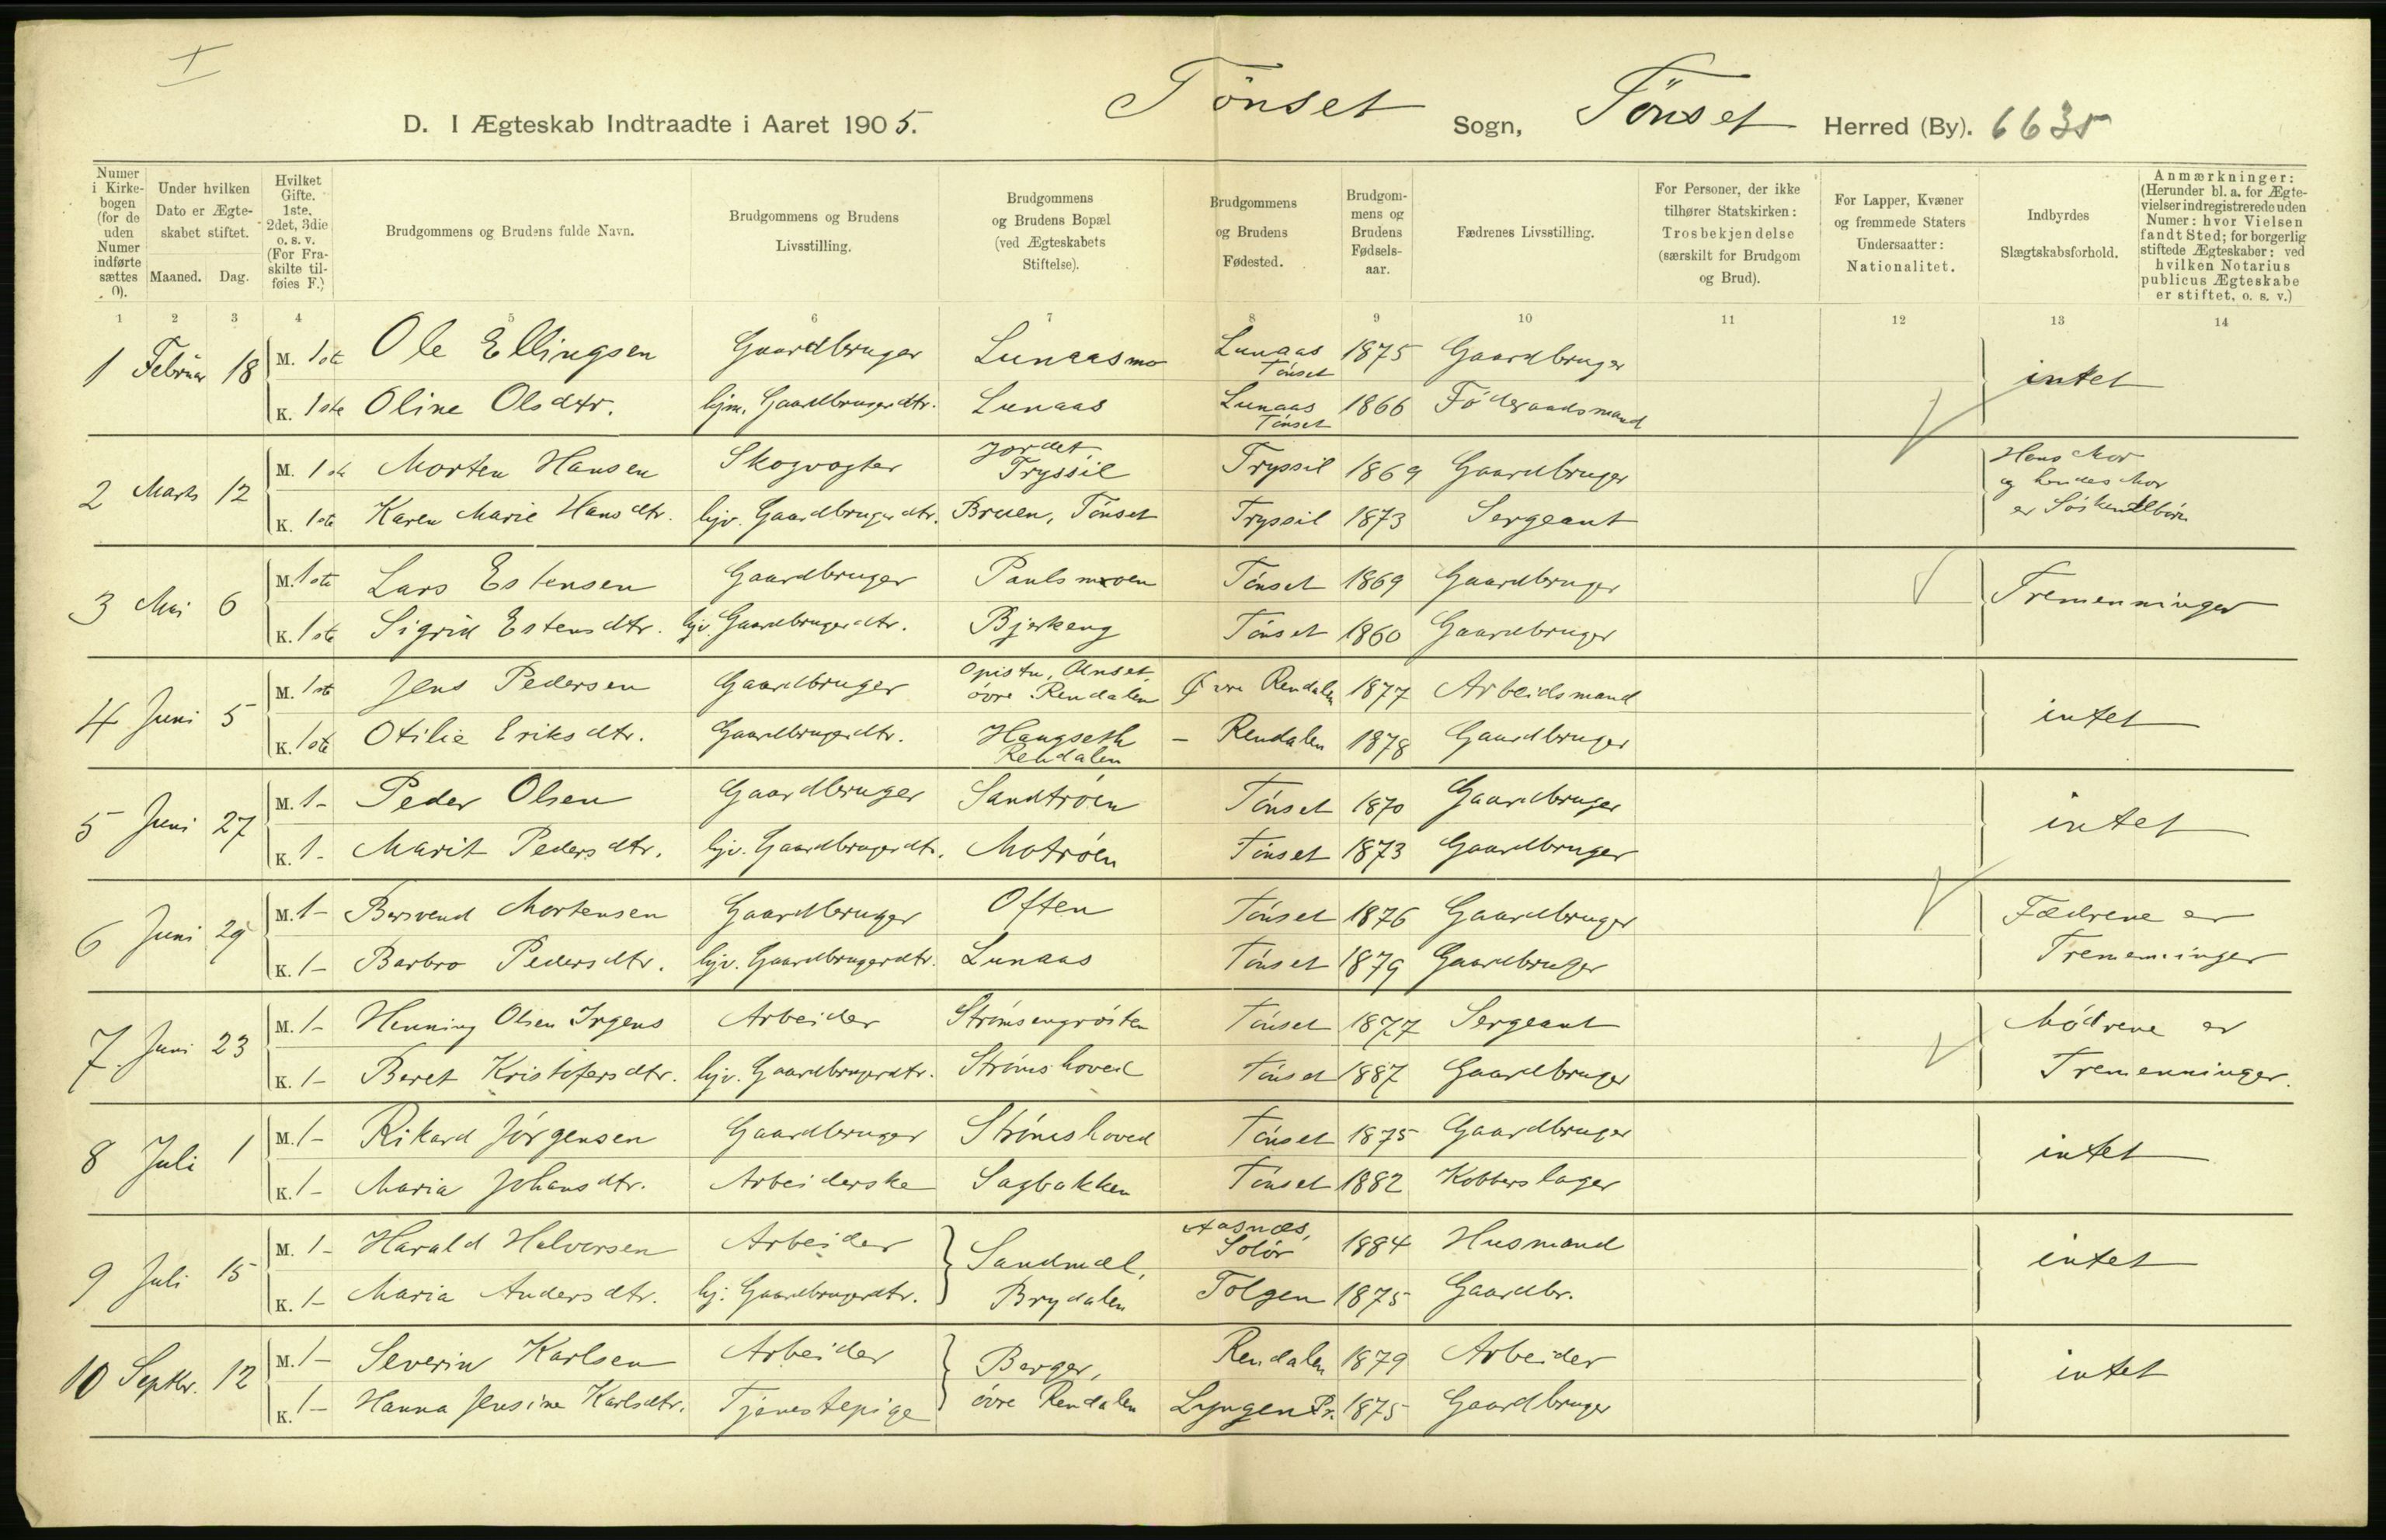 I
D. I Ægteskab Indtraadte i Aaret 1905. Tönset Sogn, Tönset Herred (By). 6635
Numer i Kirkebogen (for de uden Numer indførte sættes 0).
Under hvilken Dato er Ægteskabet stiftet.
Maaned. Dag.
Hvilket Gifte. 1ste, 2det, 3die o. s. v. (For Fraskilte tilføies F.)
Brudgommens og Brudens fulde Navn.
Brudgommens og Brudens Livsstilling.
Brudgommens og Brudens Bopæl (ved Ægteskabets Stiftelse).
Brudgommens og Brudens Fødested.
Brudgommens og Brudens Fødselsaar.
Fædrenes Livsstilling.
For Personer, der ikke tilhører Statskirken: Trosbekjendelse (særskilt for Brudgom og Brud).
For Lapper, Kvæner og fremmede Staters Undersaatter: Nationalitet.
Indbyrdes Slægtskabsforhold.
Anmærkninger: (Herunder bl. a. for Ægtevielser indregistrerede uden Numer: hvor Vielsen fandt Sted; for borgerlig stiftede Ægteskaber: ved hvilken Notarius publicus Ægteskabe er stiftet, o. s. v.)
1 2 3 4 5 6 7 8 9 10 11 12 13 14
1 Februar 18 M. 1ste Ole Ellingsen Gaardbruger Lunaasmo Lunaas Tönset 1875 Gaardbruger intet
K. 1ste Oline Olsdtr. hjm. Gaardbrugerdtr. Lunaas Lunaas Tönset 1866 Föderaadsmand
2 Marts 12 M. 1ste Morten Hansen Skogvogter Jordet, Tryssil Tryssil 1869 Gaardbruger Hans Mor
K. 1ste Karen Marie Hansdtr. hjv. Gaardbrugerdtr. Bruen, Tönset Tryssil 1873 Sergeant og hendes Mor er Söskendbörn
3 Mai 6 M. 1ste Lars Estensen Gaardbruger Paulsmoen Tönset 1869 Gaardbruger Tremenninger
K. 1ste Sigrid Estensdtr. hjv. Gaardbrugerdtr. Bjerkeng Tönset 1860 Gaardbruger
4 Juni 5 M. 1ste Jens Pedersen Gaardbruger Opistu, Unset, övre Rendalen Øvre Rendalen 1877 Arbeidsmand intet
K. 1ste Otilie Eriksdtr. Gaardbrugerdtr. Haugseth Rendalen - Rendalen 1878 Gaardbruger
5 Juni 27 M. 1- Peder Olsen Gaardbruger Sandtröen Tönset 1870 Gaardbruger intet
K. 1- Marit Pedersdtr. hjv. Gaardbrugerdtr. Motröen Tönset 1873 Gaardbruger
6 Juni 29 M. 1- Bersvend Mortensen Gaardbruger Often Tönset 1876 Gaardbruger Fædrene er
K. 1- Barbro Pedersdtr. hjv. Gaardbrugerdtr. Lunaas Tönset 1879 Gaardbruger Tremenninger
7. Juni 23 M. 1- Henning Olsen Irgens Arbeider Strömsengrösten Tönset 1877 Sergeant Mödrene er
K. 1- Beret Kristofersdtr. hjv. Gaardbrugerdtr. Strömshoved Tönset 1887 Gaardbruger Tremenninger.
8 Juli 1 M. 1- Rikard Jörgensen Gaardbruger Strömshoved Tönset 1875 Gaardbruger intet
K. 1- Maria Johansdtr. Arbeiderske Sagbakken Tönset 1882 Kobberslager
9 Juli 15 M. 1- Harald Halvorsen Arbeider Sandmæl, Aasnæs, Solör 1884 Husmand intet
K. 1- Maria Andersdtr. hj. Gaardbrugerdtr. Brydalen Tolgen 1875 Gaardbr.
10 Septbr. 12 M. 1- Severin Karlsen Arbeider Berger, Rendalen 1879 Arbeider intet
K. 1- Hanna Jensine Karlsdtr. Tjenestepige övre Rendalen Lyngen Pr. 1875 Gaardbruger